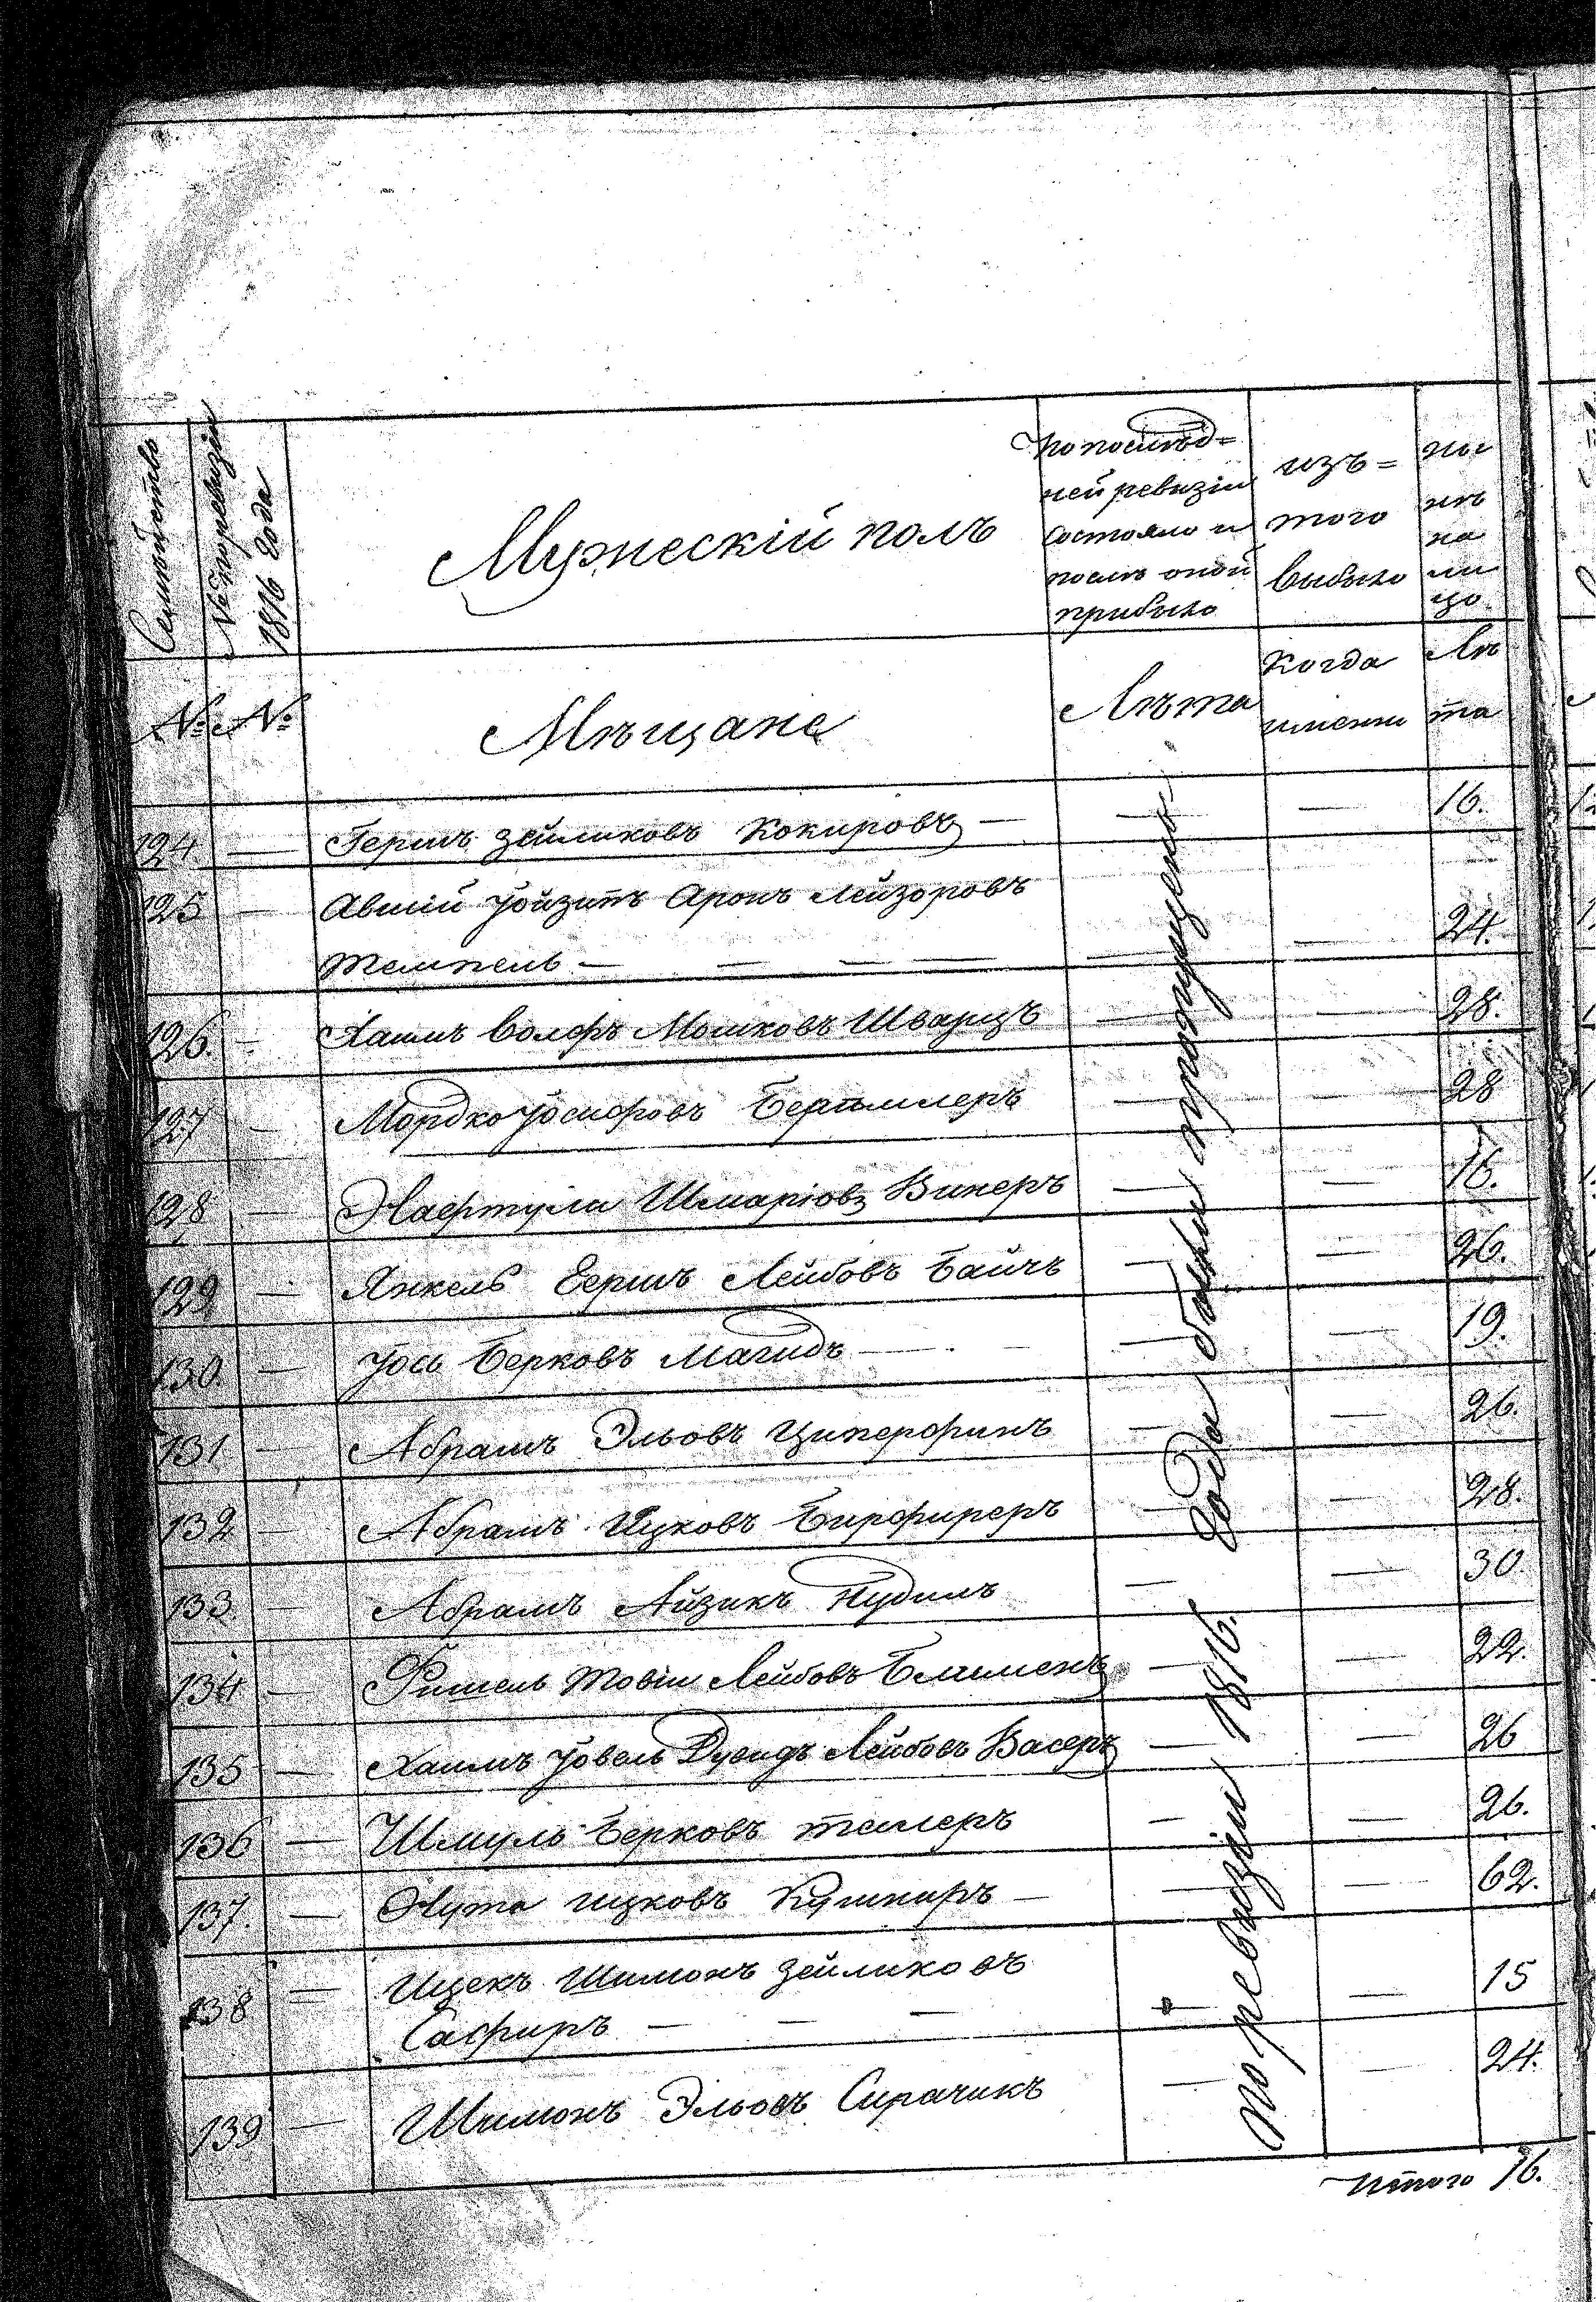 Семѣйствъ
№ по ревизіи
1816 года
Мужескій полъ
по послѣд=
ней ревизіи
состояло и
послѣ оной
прибыло
изъ=
того
выбыло
ны
нѣ
на
ли
цо
№ №
Мѣщане
Лѣта
когда
имянно
Лѣ
та
124 — Гершъ Зейликовъ Кокировъ — — — 16.
125 — Авшій Іойзипъ Аронъ Лейзоровъ
Темпель — — — — — — 24.
126. — Хаимъ Волфъ Мошковъ Шварцъ — — 28.
127 — Мордко Іосифовъ — — 28
128 — Нафтула Шмаріовъ Винеръ — — 16.
129 — Янкель Гершъ Лейбовъ Байчъ — — 26.
130. — Іось Берковъ Магидъ — — — 19.
131 — Абрамъ Эльовъ Циперфинъ — — 26.
132 — Абрамъ Ицковъ Бирфиреръ — — 28.
133 — Абрамъ Айзикъ Нудилъ — — 30.
134 — Фишель Товіи Лейбовъ — — 22.
135 — Хаимъ Іовель Дувидъ Лейбовъ Васеръ — — 26
136 — Шмуль Берковъ Телеръ — — 26.
137. — Нута Ицковъ Кушниръ — — — 62.
138 — Ицекъ Шимонъ Зейликовъ
Сафиръ — — — — — 15
139 — Шимонъ Эльовъ Сирачикъ — — 24.
По ревизіи 1816. года были пропущены
Итого 16.